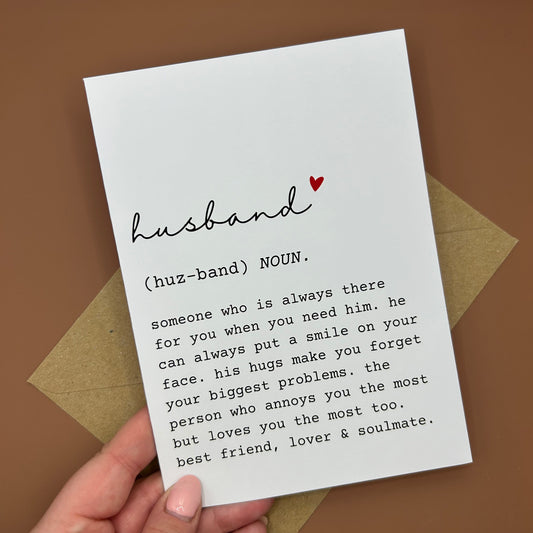 husband
(huz-band) NOUN.
someone who is always there
for you when you need him. he
can always put a smile on your
face. his hugs make you forget
your biggest problems. the
person who annoys you the most
but loves you the most too.
best friend, lover & soulmate.